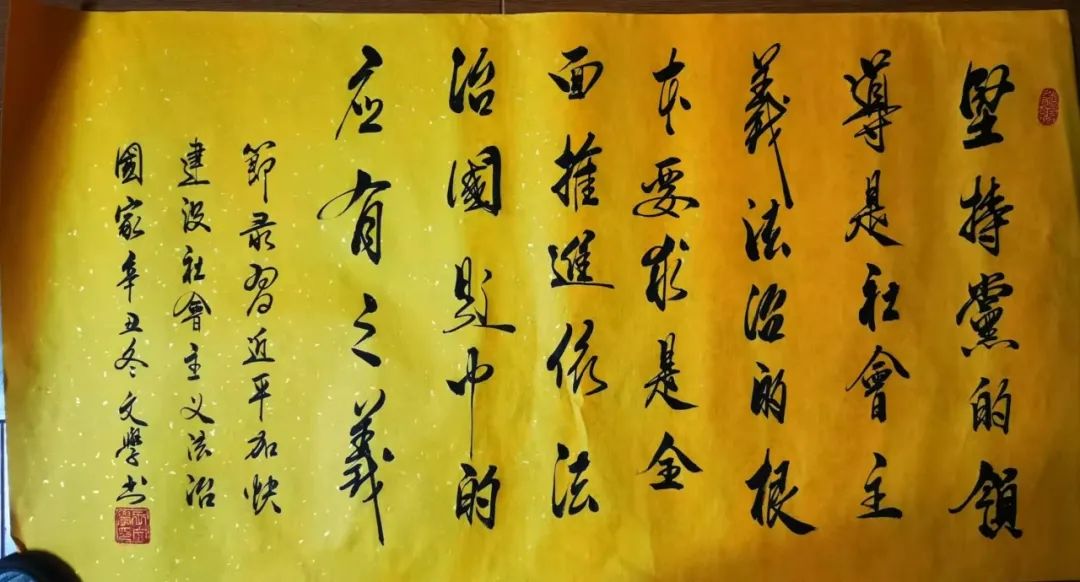 堅持黨的領
導是社會主
義法治的根
本要求是全
面推進依法
治國题中的
应有之義
節录習近平加快
建设社會主义法治
國家辛丑冬文學书